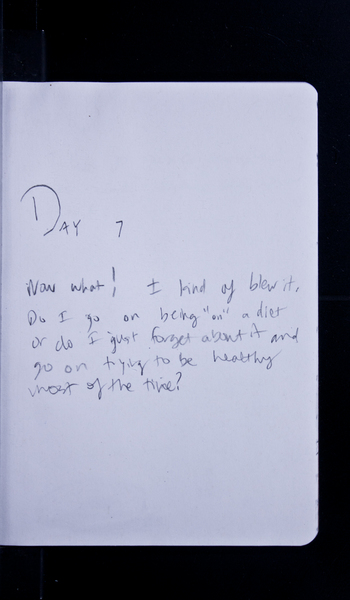 DAY 7
Now what! I kind of blew it.
Do I go on being "on" a diet
or do I just forget about it and
go on trying to be healthy
most of the time?